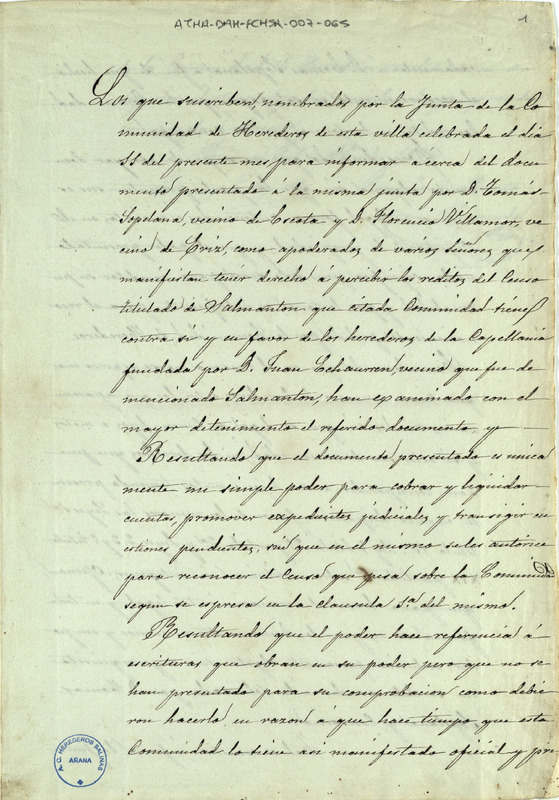 ATHA-DAH-FCHSA-007-065
1
Los que suscriben, nombrados por la Junta de la Co
munidad de Herederos de esta villa celebrada el dia
11 del presente mes para informar á cerca del docu
mento presentado á la misma junta por D. Tomás
Sopelana, vecino de Escota y D. Florencio Villamor, ve
cino de Eriz, como apoderados de varios Señores que
manifiestan tener derecho á percibir los reditos del Censo
titulado de Salmanton que citada Comunidad tiene
contra sí y en favor de los herederos de la Capellania
fundada por D. Juan Echaurren, vecino que fue de
mencionado Salmanton, han examinado con el
mayor detenimiento el referido documento, y
Resultando que el documento presentado es unica
mente un simple poder para cobrar y liquidar
cuentas, promover expedientes judiciales y transigir cu
estiones pendientes, sin que en el mismo se les autorice
para reconocer el Censo que pesa sobre la Comunidad
segun se espresa en la clausula 1ª del mismo.
Resultando que el poder hace referencia á
escrituras que obran en su poder pero que no se
han presentado para su comprobacion como debie
ron hacerlo, en razon á que hace tiempo que esta
Comunidad lo tiene asi manifestado oficial y pri
C. HEREDEROS SALINAS
AÑANA